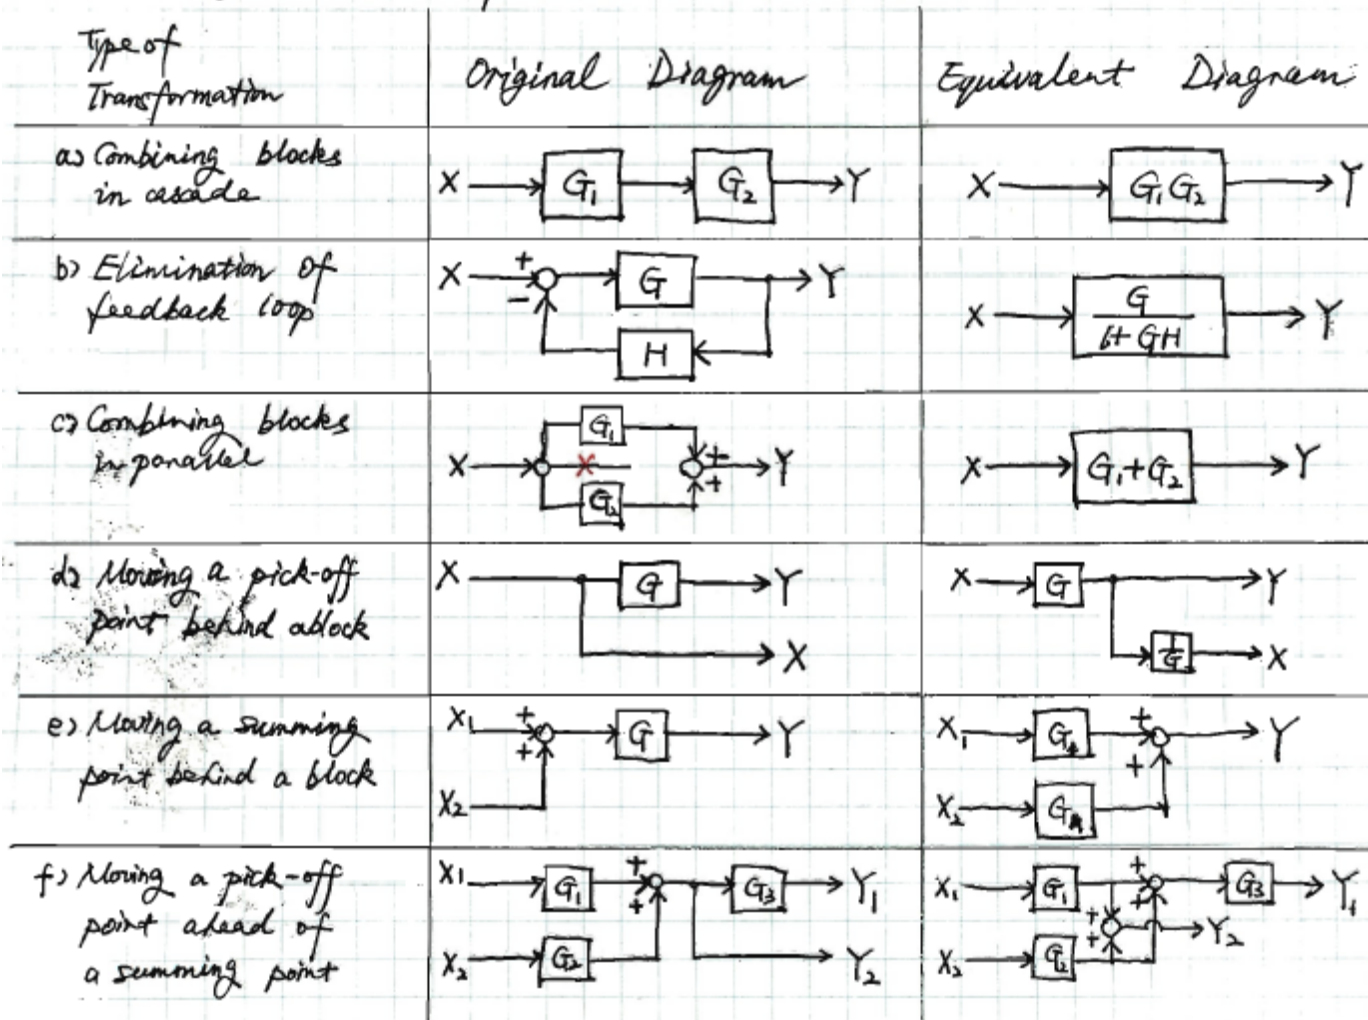 Type of
Transformation
Original Diagram
Equivalent Diagram
a) Combining blocks
in cascade
X G₁ G₂ Y
X G₁G₂ Y
b) Elimination of
feedback loop
X + − G Y
H
X G Y
1+GH
c) Combining blocks
in parallel
G₁
X × + Y
+
G₂
X G₁+G₂ Y
d) Moving a pick-off
point behind a block
X G Y
X
X G Y
1
G X
e) Moving a summing
point behind a block
X₁ + G Y
+
X₂
X₁ G + Y
+
X₂ G
f) Moving a pick-off
point ahead of
a summing point
X₁ G₁ + G₃ Y₁
+
X₂ G₂ Y₂
X₁ G₁ + G₃ Y₁
+ +
+ Y₂
X₂ G₂